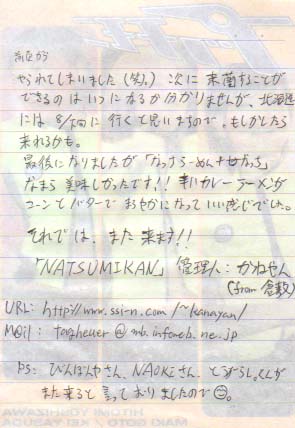 やられてしまいました(笑)。次に来蘭することが
できるのはいつになるか分かりませんが、北海道
には 8/下旬に行くと思いますので、もしかしたら
来れるかも。
最後になりましたが
なまら美味しかったです!! 辛いカレーラーメンが
コーンとバターでまろやかになっていい感じでした。
それでは、また来ます!!
「NATSUMIKAN」管理人:かねやん
(from 倉敷)
URL: http://www.ssi-n.com/~kanayan/
M@il: @mb.infoweb.ne.jp
PS: びんぼんやさん、NAOKIさん、
また来ると言っておりましたので☺。
HITOMI YOSHIZAWA
MAKI GOTO KEI YASUDA